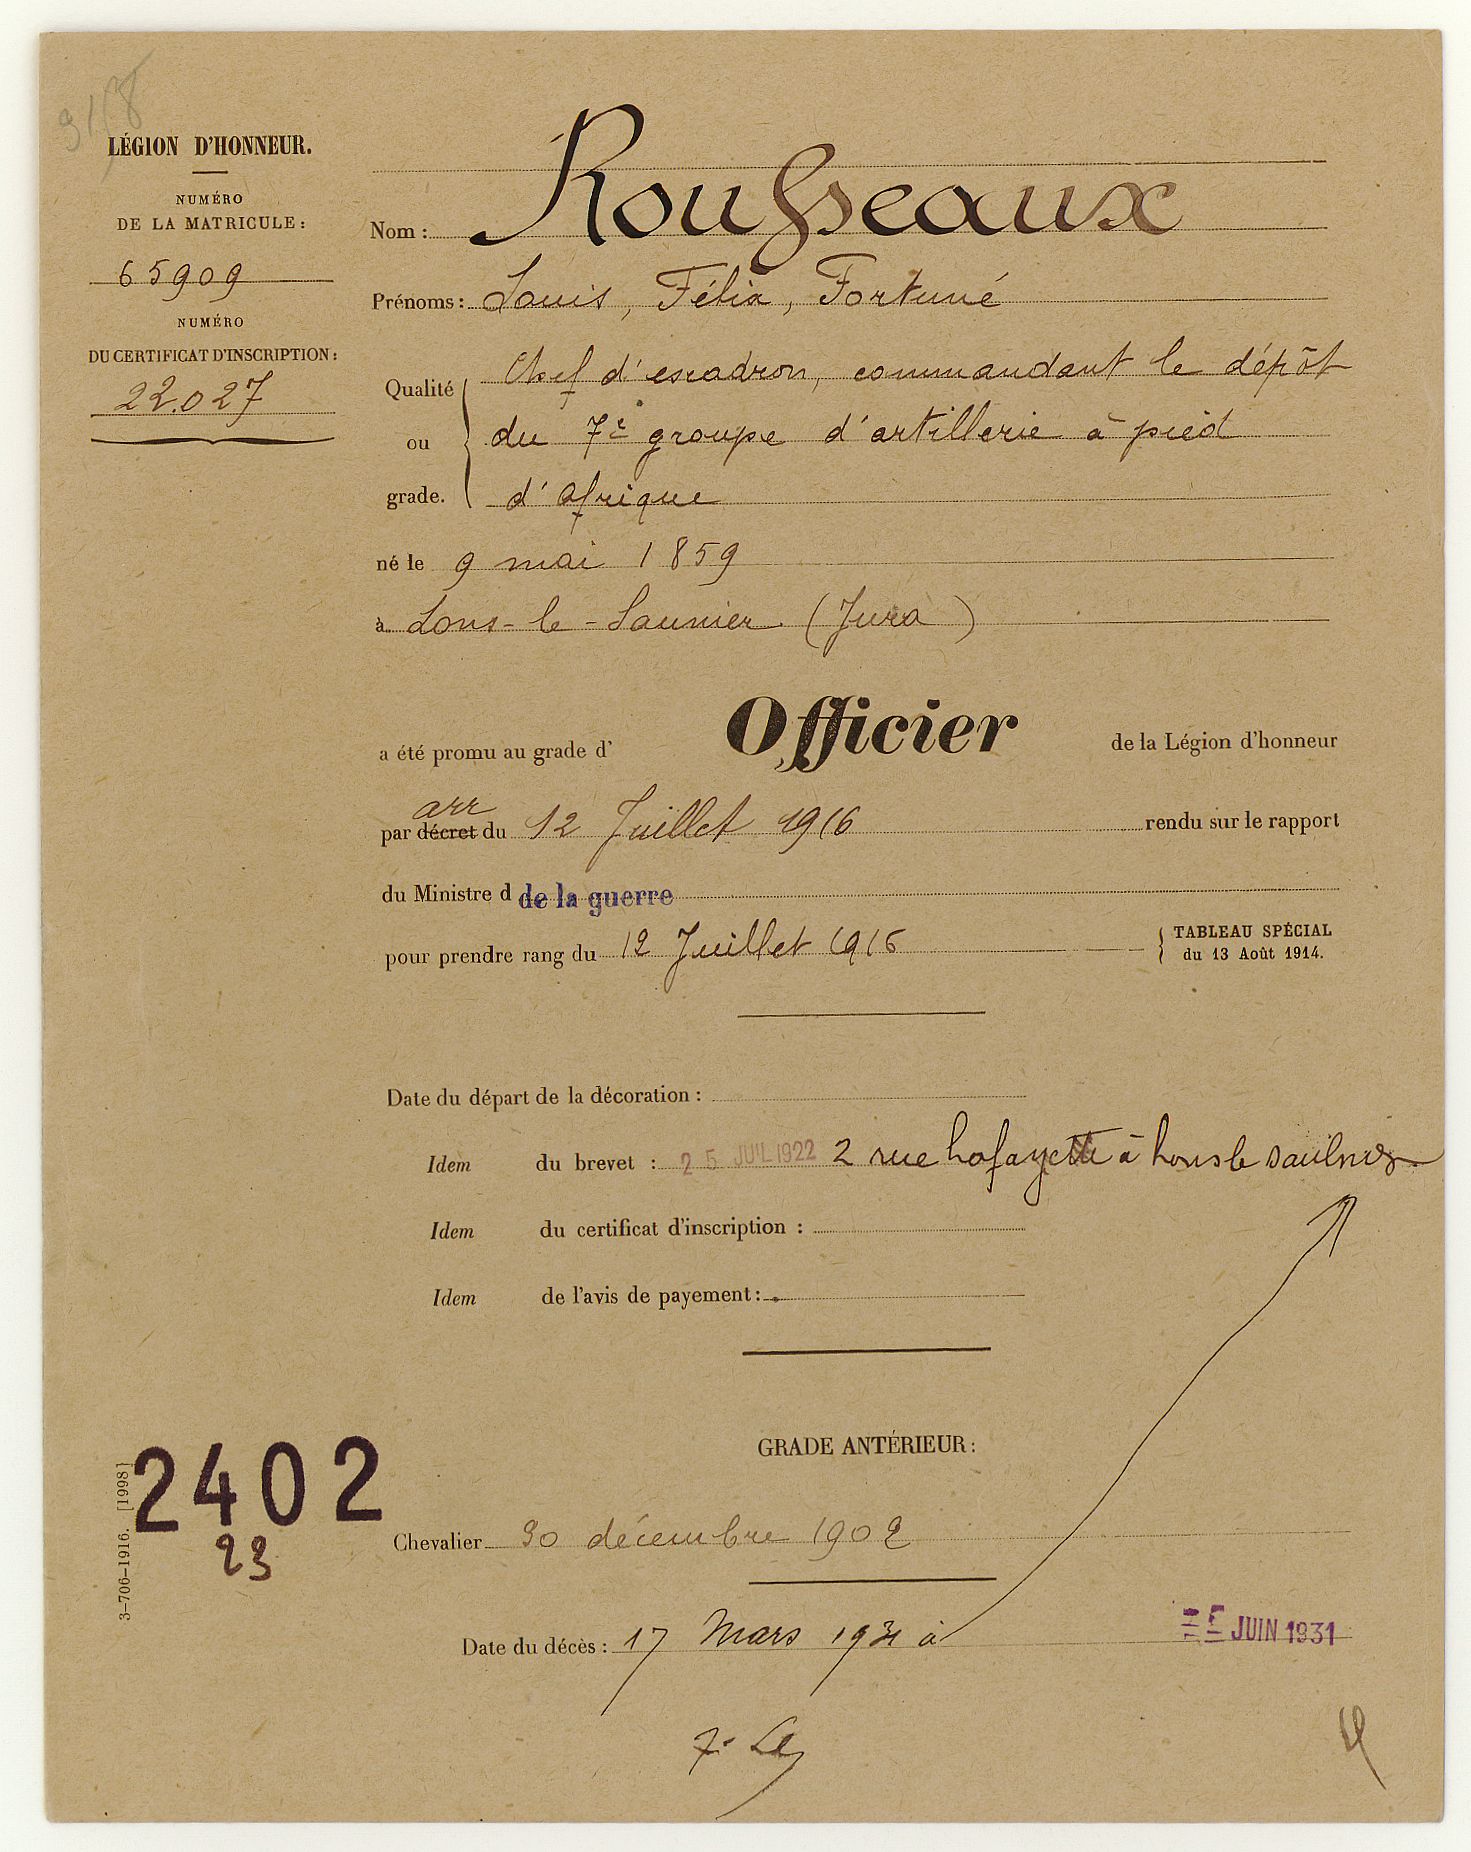 LÉGION D'HONNEUR.
NUMÉRO
DE LA MATRICULE:
65909
NUMÉRO
DU CERTIFICAT D'INSCRIPTION:
22.027
Nom: Rousseaux
Prénoms: Louis, Félix, Fortuné
Qualité ou grade. Chef d'escadron, commandant le dépôt
du 7e groupe d'artillerie à pied
d'Afrique
né le 9 mai 1859
à Lons-le-Saunier (Jura)
a été promu au grade d' Officier de la Légion d'honneur
arr
par décret du 12 Juillet 1916 rendu sur le rapport
du Ministre d de la guerre
pour prendre rang du 12 Juillet 1916 TABLEAU SPÉCIAL
du 13 Août 1914.
Date du départ de la décoration:
Idem du brevet: 25 JUIL 1922 2 rue Lafayette à Lons le Saulnier
Idem du certificat d'inscription:
Idem de l'avis de payement:
GRADE ANTÉRIEUR:
Chevalier 30 décembre 1902
Date du décès: 17 Mars 1931 à
JUIN 1931
2402
23
3-706-1916. [1998]